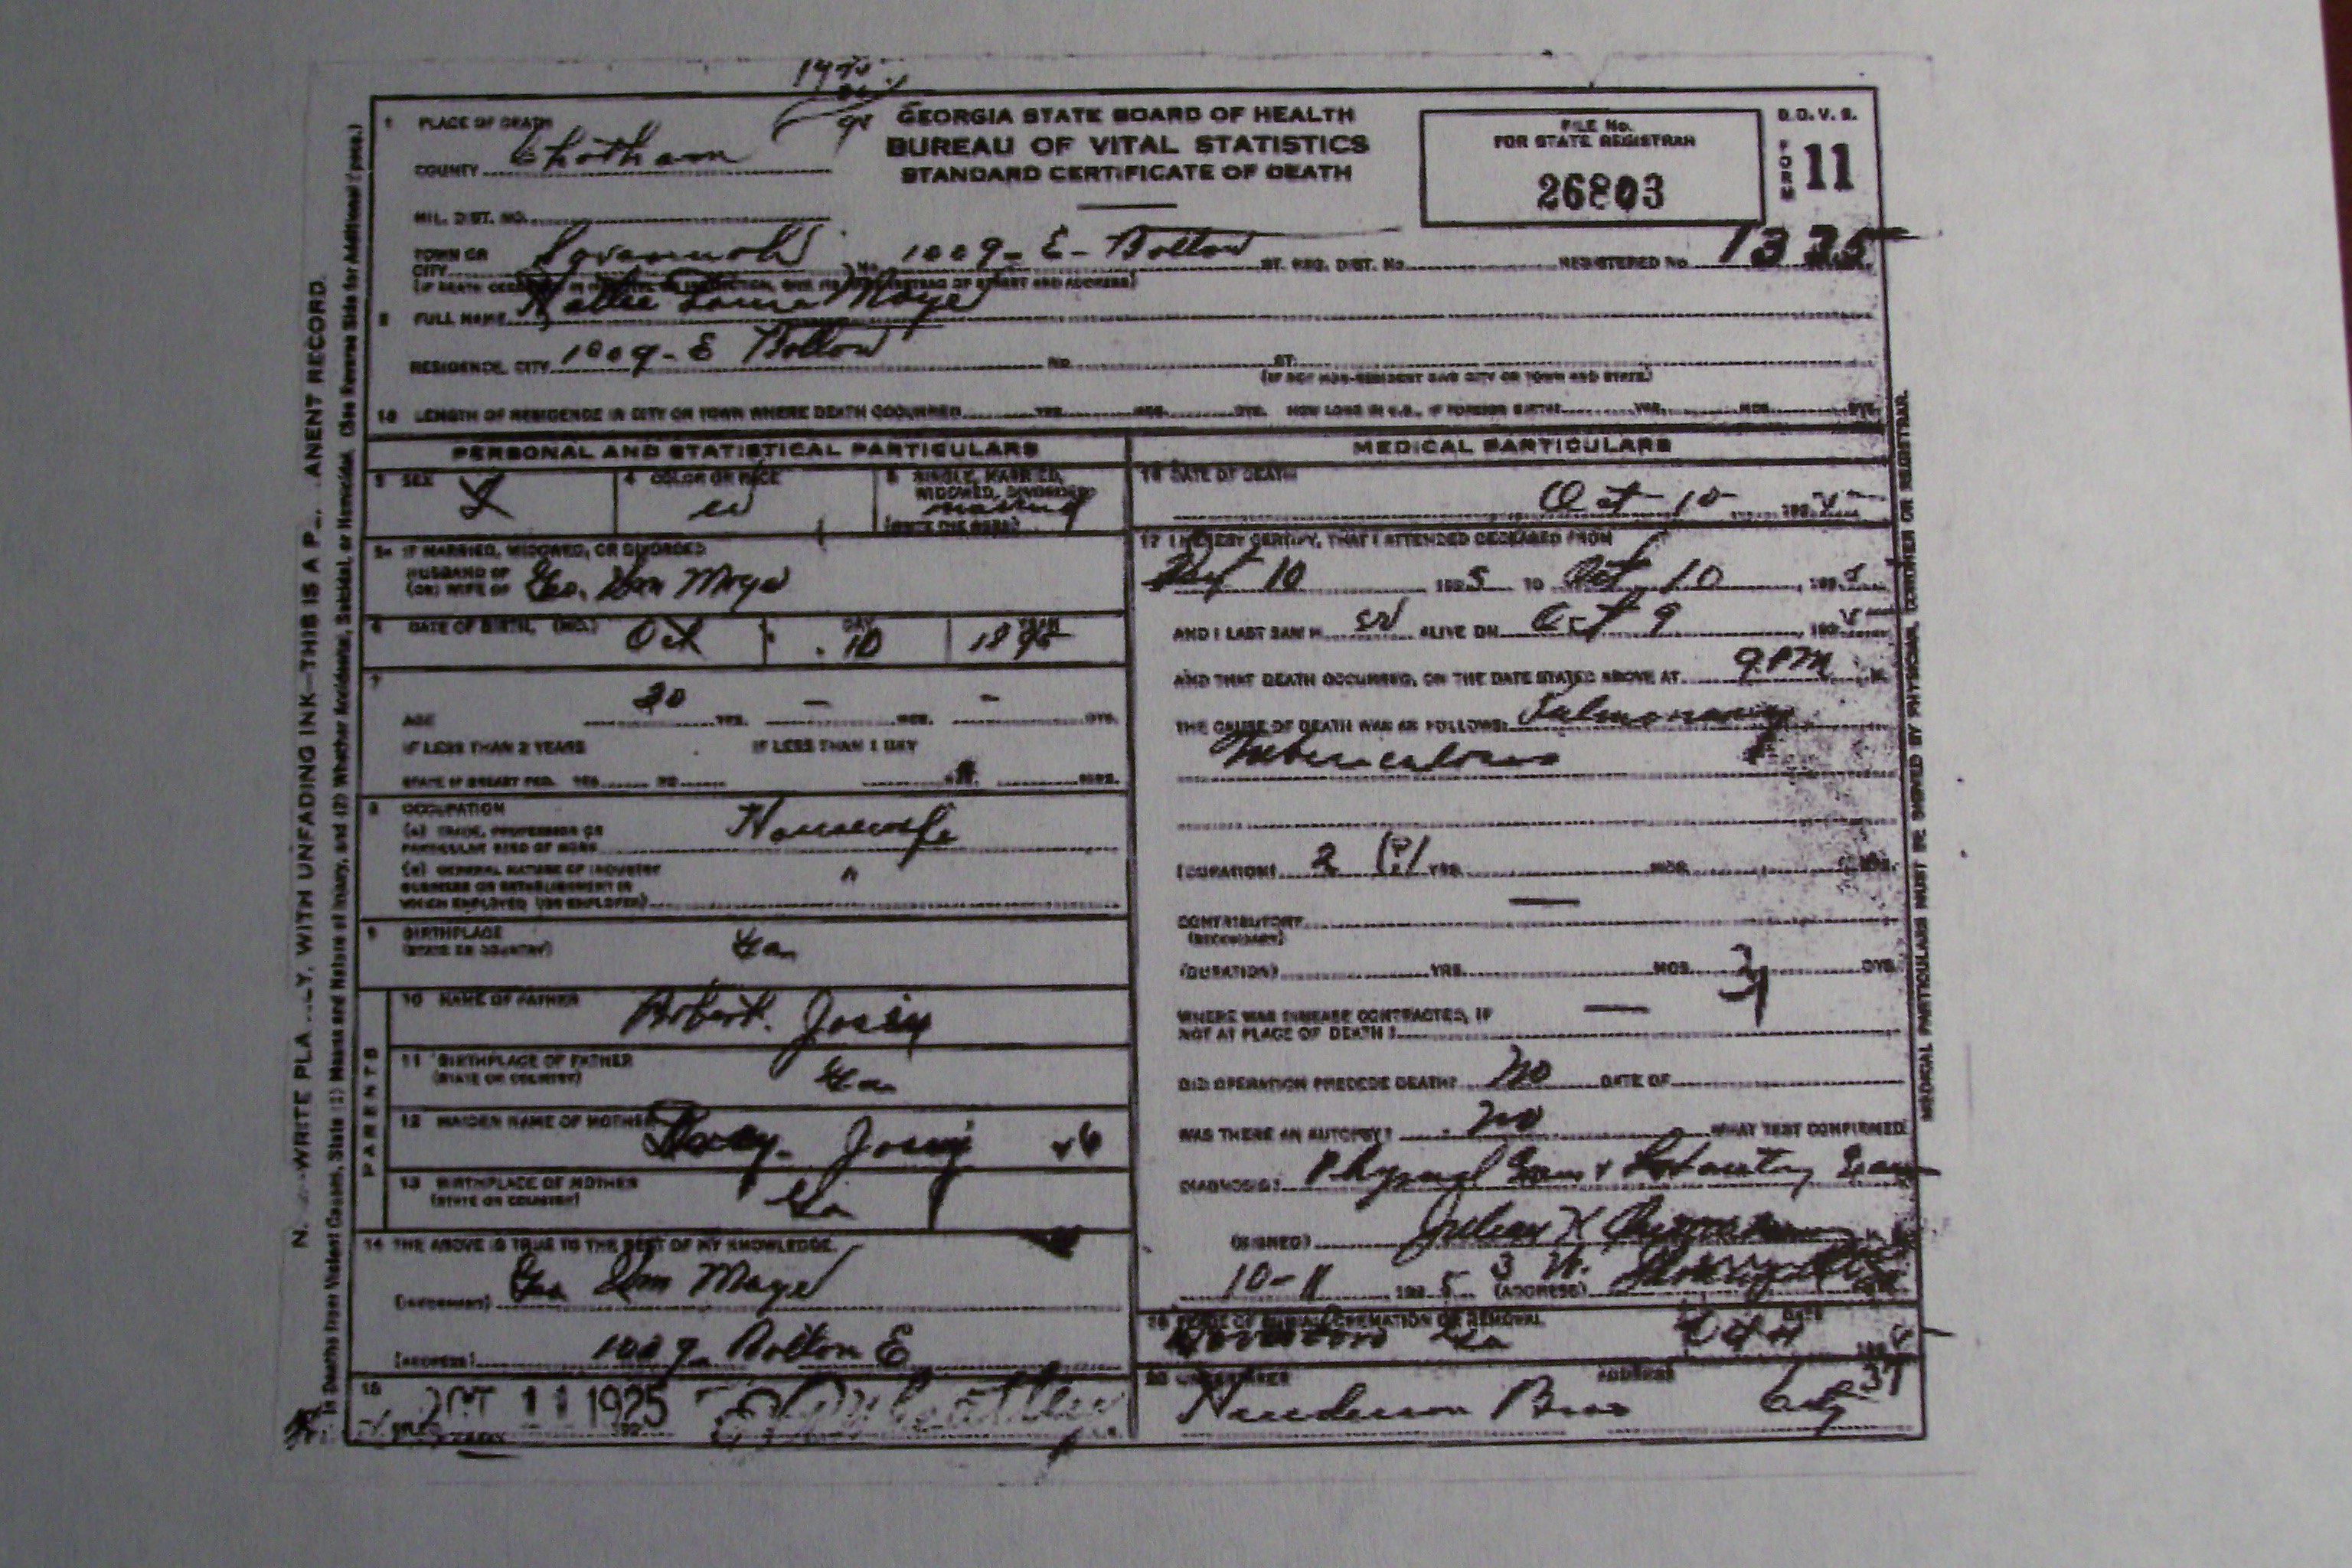 GEORGIA STATE BOARD OF HEALTH
BUREAU OF VITAL STATISTICS
STANDARD CERTIFICATE OF DEATH
FILE No.
FOR STATE REGISTRAR
26803
B.O.V.S.
FORM 11
1 PLACE OF DEATH
COUNTY Chatham
MIL. DIST. NO.
TOWN OR CITY Savannah No. 1009- E- Bolton ST. REG. DIST. No. REGISTERED No. 1335
2 FULL NAME Maye
RESIDENCE, CITY 1009- E Bolton NO. ST.
(IF NON-RESIDENT GIVE CITY OR TOWN AND STATE)
LENGTH OF RESIDENCE IN CITY OR TOWN WHERE DEATH OCCURRED YRS. MOS. DYS. HOW LONG IN U.S., IF FOREIGN BIRTH? YRS. MOS. DYS.
PERSONAL AND STATISTICAL PARTICULARS
3 SEX
4 COLOR OR RACE W
5 SINGLE, MARRIED, WIDOWED, DIVORCED married
(WRITE THE WORD)
5a IF MARRIED, WIDOWED, OR DIVORCED
HUSBAND OF
(OR) WIFE OF Geo. Maye
6 DATE OF BIRTH, (MO.) Oct DAY 10 YEAR 1895
7
AGE 30 YRS. – MOS. – DYS.
IF LESS THAN 2 YEARS IF LESS THAN 1 DAY
STATE IF BREAST FED. YES NO HRS. MINS.
8 OCCUPATION
(a) TRADE, PROFESSION OR
PARTICULAR KIND OF WORK Housewife
(b) GENERAL NATURE OF INDUSTRY
BUSINESS OR ESTABLISHMENT IN
WHICH EMPLOYED (OR EMPLOYER) "
9 BIRTHPLACE
(STATE OR COUNTRY) Ga
PARENTS
10 NAME OF FATHER Robert.
11 BIRTHPLACE OF FATHER
(STATE OR COUNTRY) Ga
12 MAIDEN NAME OF MOTHER
13 BIRTHPLACE OF MOTHER
(STATE OR COUNTRY) Ga
14 THE ABOVE IS TRUE TO THE BEST OF MY KNOWLEDGE.
(INFORMANT) Geo Maye
(ADDRESS) 1009 Bolton E
15
OCT 11 1925
MEDICAL PARTICULARS
16 DATE OF DEATH
Oct 10 1925
17 I HEREBY CERTIFY, THAT I ATTENDED DECEASED FROM
10 1925 TO Oct 10, 1925
AND I LAST SAW H er ALIVE ON Oct 9, 1925
AND THAT DEATH OCCURRED, ON THE DATE STATED ABOVE AT 9 PM M.
THE CAUSE OF DEATH WAS AS FOLLOWS: Pulmonary
Tuberculosis
(DURATION) 2 (?) YRS. MOS. DYS.
CONTRIBUTORY —
(SECONDARY)
(DURATION) YRS. MOS. DYS.
31
WHERE WAS DISEASE CONTRACTED, IF
NOT AT PLACE OF DEATH? —
DID OPERATION PRECEDE DEATH? No DATE OF
WAS THERE AN AUTOPSY? No WHAT TEST CONFIRMED
DIAGNOSIS? Physical Exam &
(SIGNED) Julian
10-11 1925 (ADDRESS) 3 W.
PLACE OF BURIAL, CREMATION OR REMOVAL DATE
Ga
20 UNDERTAKER ADDRESS
Henderson Bros City
37
N. B.—WRITE PLAINLY, WITH UNFADING INK—THIS IS A P ANENT RECORD.
In Deaths from Violent Causes, State (1) Means and Nature of Injury, and (2) Whether Accidental, Suicidal, or Homicidal. (See Reverse Side for Additional Space.)
MEDICAL PARTICULARS MUST BE SIGNED BY PHYSICIAN, CORONER OR REGISTRAR.